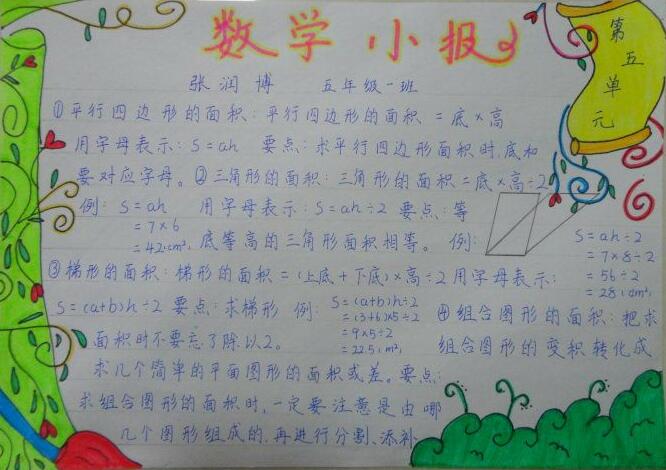 数学小报
第五单元
张润博 五年级一班
①平行四边形的面积:平行四边形的面积=底×高
用字母表示:S=ah 要点:求平行四边形面积时,底和
要对应字母。②三角形的面积:三角形的面积=底×高÷2
例:S=ah 用字母表示:S=ah÷2 要点:等
=7×6
=42(cm²) 底等高的三角形面积相等。例:
S=ah÷2
=7×8÷2
=56÷2
=28(dm²)
③梯形的面积:梯形的面积=(上底+下底)×高÷2用字母表示:
S=(a+b)h÷2 要点:求梯形 例:
面积时不要忘了除以2。
S=(a+b)h÷2
=(3+6)×5÷2
=9×5÷2
=22.5(m²)
④组合图形的面积:把求
组合图形的变积转化成
求几个简单的平面图形的面积或差。要点:
求组合图形的面积时,一定要注意是由哪
几个图形组成的,再进行分割、添补